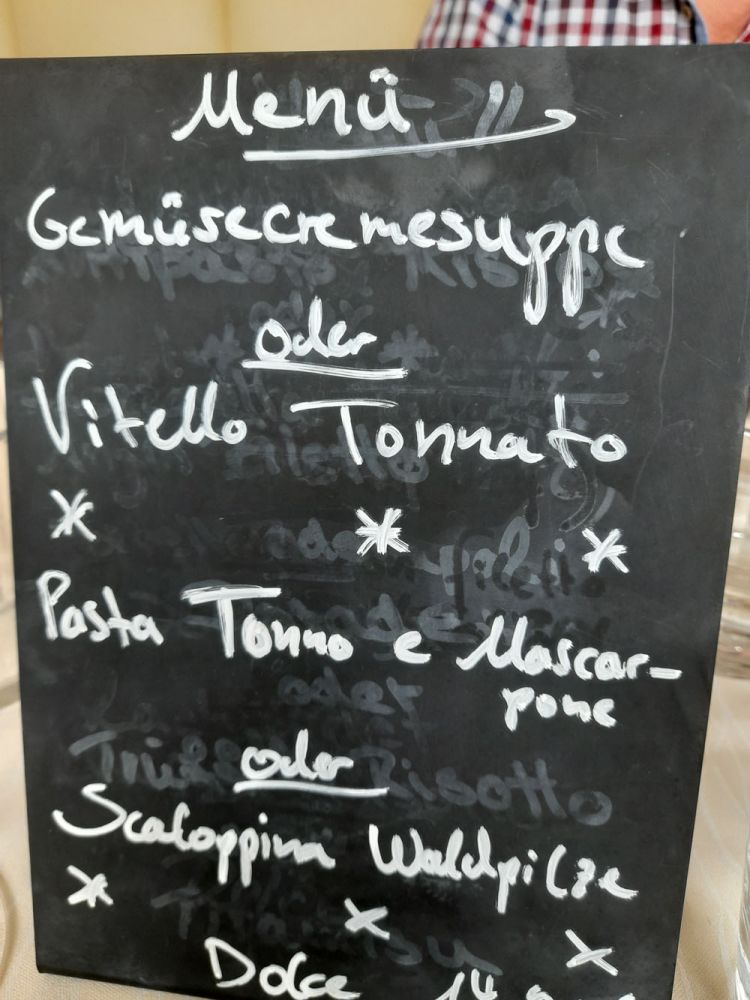 Menü
Gemüsecremesuppe
oder
Vitello Tonnato
* * *
Pasta Tonno e Mascar-
pone
oder
Scaloppina Waldpilze
* * *
Dolce